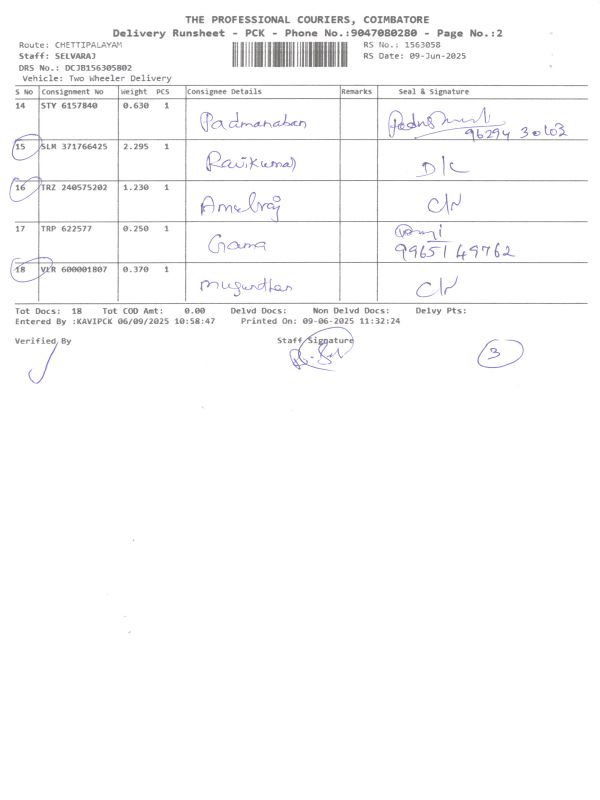 THE PROFESSIONAL COURIERS, COIMBATORE
Delivery Runsheet - PCK - Phone No.:9047080280 - Page No.:2
Route: CHETTIPALAYAM RS No.: 1563058
Staff: SELVARAJ RS Date: 09-Jun-2025
DRS No.: DCJB156305802
Vehicle: Two Wheeler Delivery
S No Consignment No Weight PCS Consignee Details Remarks Seal & Signature
14 STY 6157840 0.630 1 Padmanaban
96294 30103
15 SLM 371766425 2.295 1 Ravikumar D/C
16 TRZ 240575202 1.230 1 Amulraj C/N
17 TRP 622577 0.250 1
99651 49762
18 VLR 600001807 0.370 1 Mugundhan C/N
Tot Docs: 18 Tot COD Amt: 0.00 Delvd Docs: Non Delvd Docs: Delvy Pts:
Entered By :KAVIPCK 06/09/2025 10:58:47 Printed On: 09-06-2025 11:32:24
Verified By Staff Signature
3